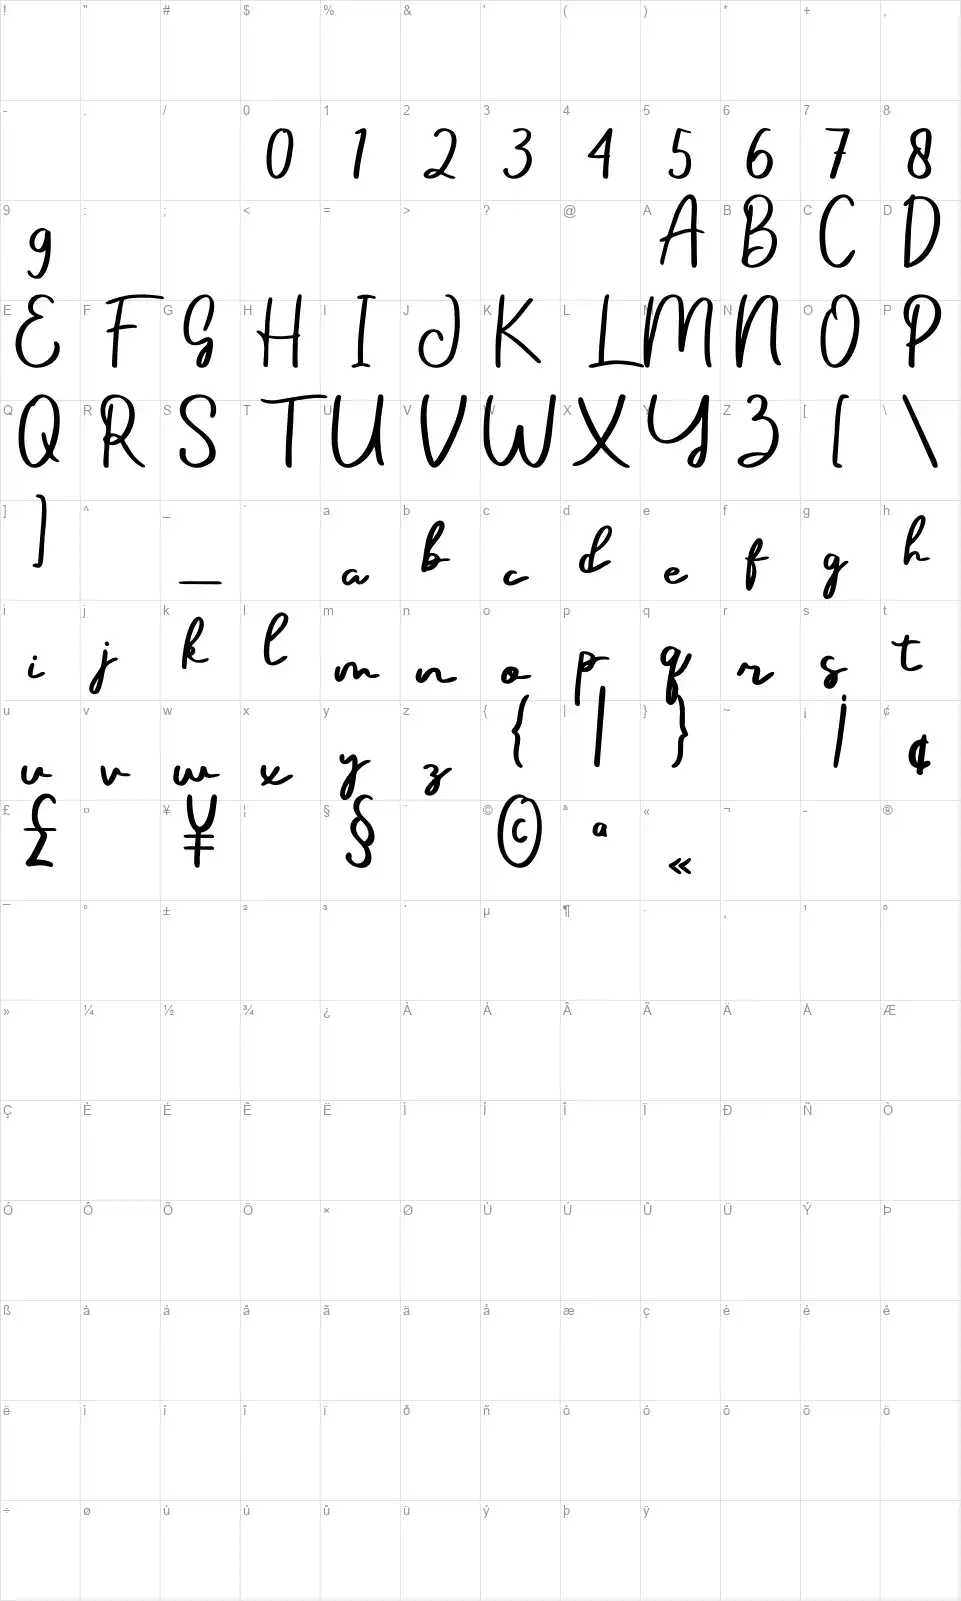 ! " # $ % & ' ( ) * + ,
- . / 0 1 2 3 4 5 6 7 8
0 1 2 3 4 5 6 7 8
9 : ; < = > ? @ A B C D
9 A B C D
E F G H I J K L M N O P
E F G H I J K L M N O P
Q R S T U V W X Y Z [ \
Q R S T U V W X Y Z [ \
] ^ _ ` a b c d e f g h
] _ a b c d e f g h
i j k l m n o p q r s t
i j k l m n o p q r s t
u v w x y z { | } ~ ¡ ¢
u v w x y z { | } ¡ ¢
£ ¤ ¥ ¦ § ¨ © ª « ¬ - ®
£ ¥ § © ª «
¯ ° ± ² ³ ´ µ ¶ · ¸ ¹ º
» ¼ ½ ¾ ¿ À Á Â Ã Ä Å Æ
Ç È É Ê Ë Ì Í Î Ï Ð Ñ Ò
Ó Ô Õ Ö × Ø Ù Ú Û Ü Ý Þ
ß à á â ã ä å æ ç è é ê
ë ì í î ï ð ñ ò ó ô õ ö
÷ ø ù ú û ü ý þ ÿ